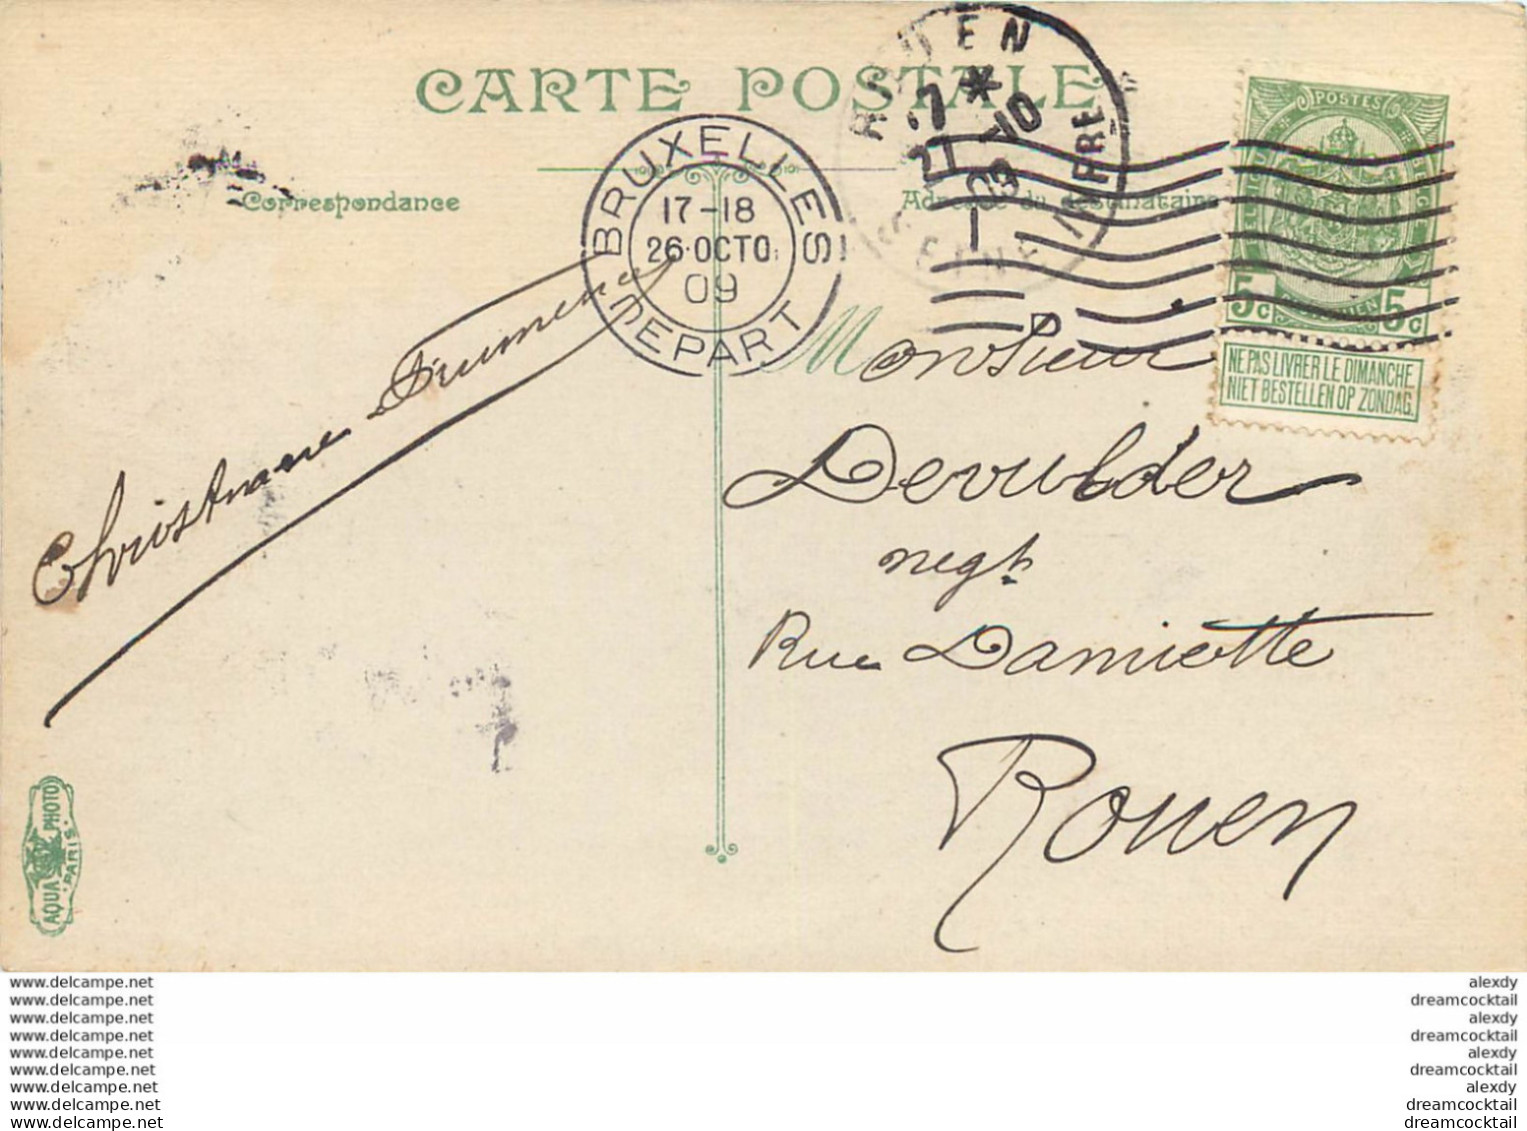 CARTE POSTALE
Correspondance
Adresse du destinataire
BRUXELLES
17-18
26·OCTO
09
DEPART
ROUEN
7 *
27 - 10
09
SEINE INFRE
POSTES
5c 5c
NE PAS LIVRER LE DIMANCHE
NIET BESTELLEN OP ZONDAG.
Monsieur
Devulder
negt
Rue Damiette
Rouen
AQUA PHOTO
PARIS.
www.delcampe.net
www.delcampe.net
www.delcampe.net
www.delcampe.net
www.delcampe.net
www.delcampe.net
www.delcampe.net
www.delcampe.net
www.delcampe.net
alexdy
dreamcocktail
alexdy
dreamcocktail
alexdy
dreamcocktail
alexdy
dreamcocktail
dreamcocktail